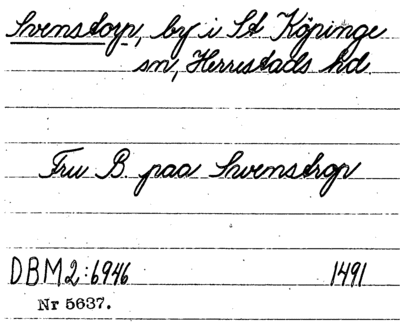 Svenstorp, by i St Köpinge
sn, Herrestads hd.
Fru B. paa Swenstrop
DBM2:6946 1491
Nr 5637.